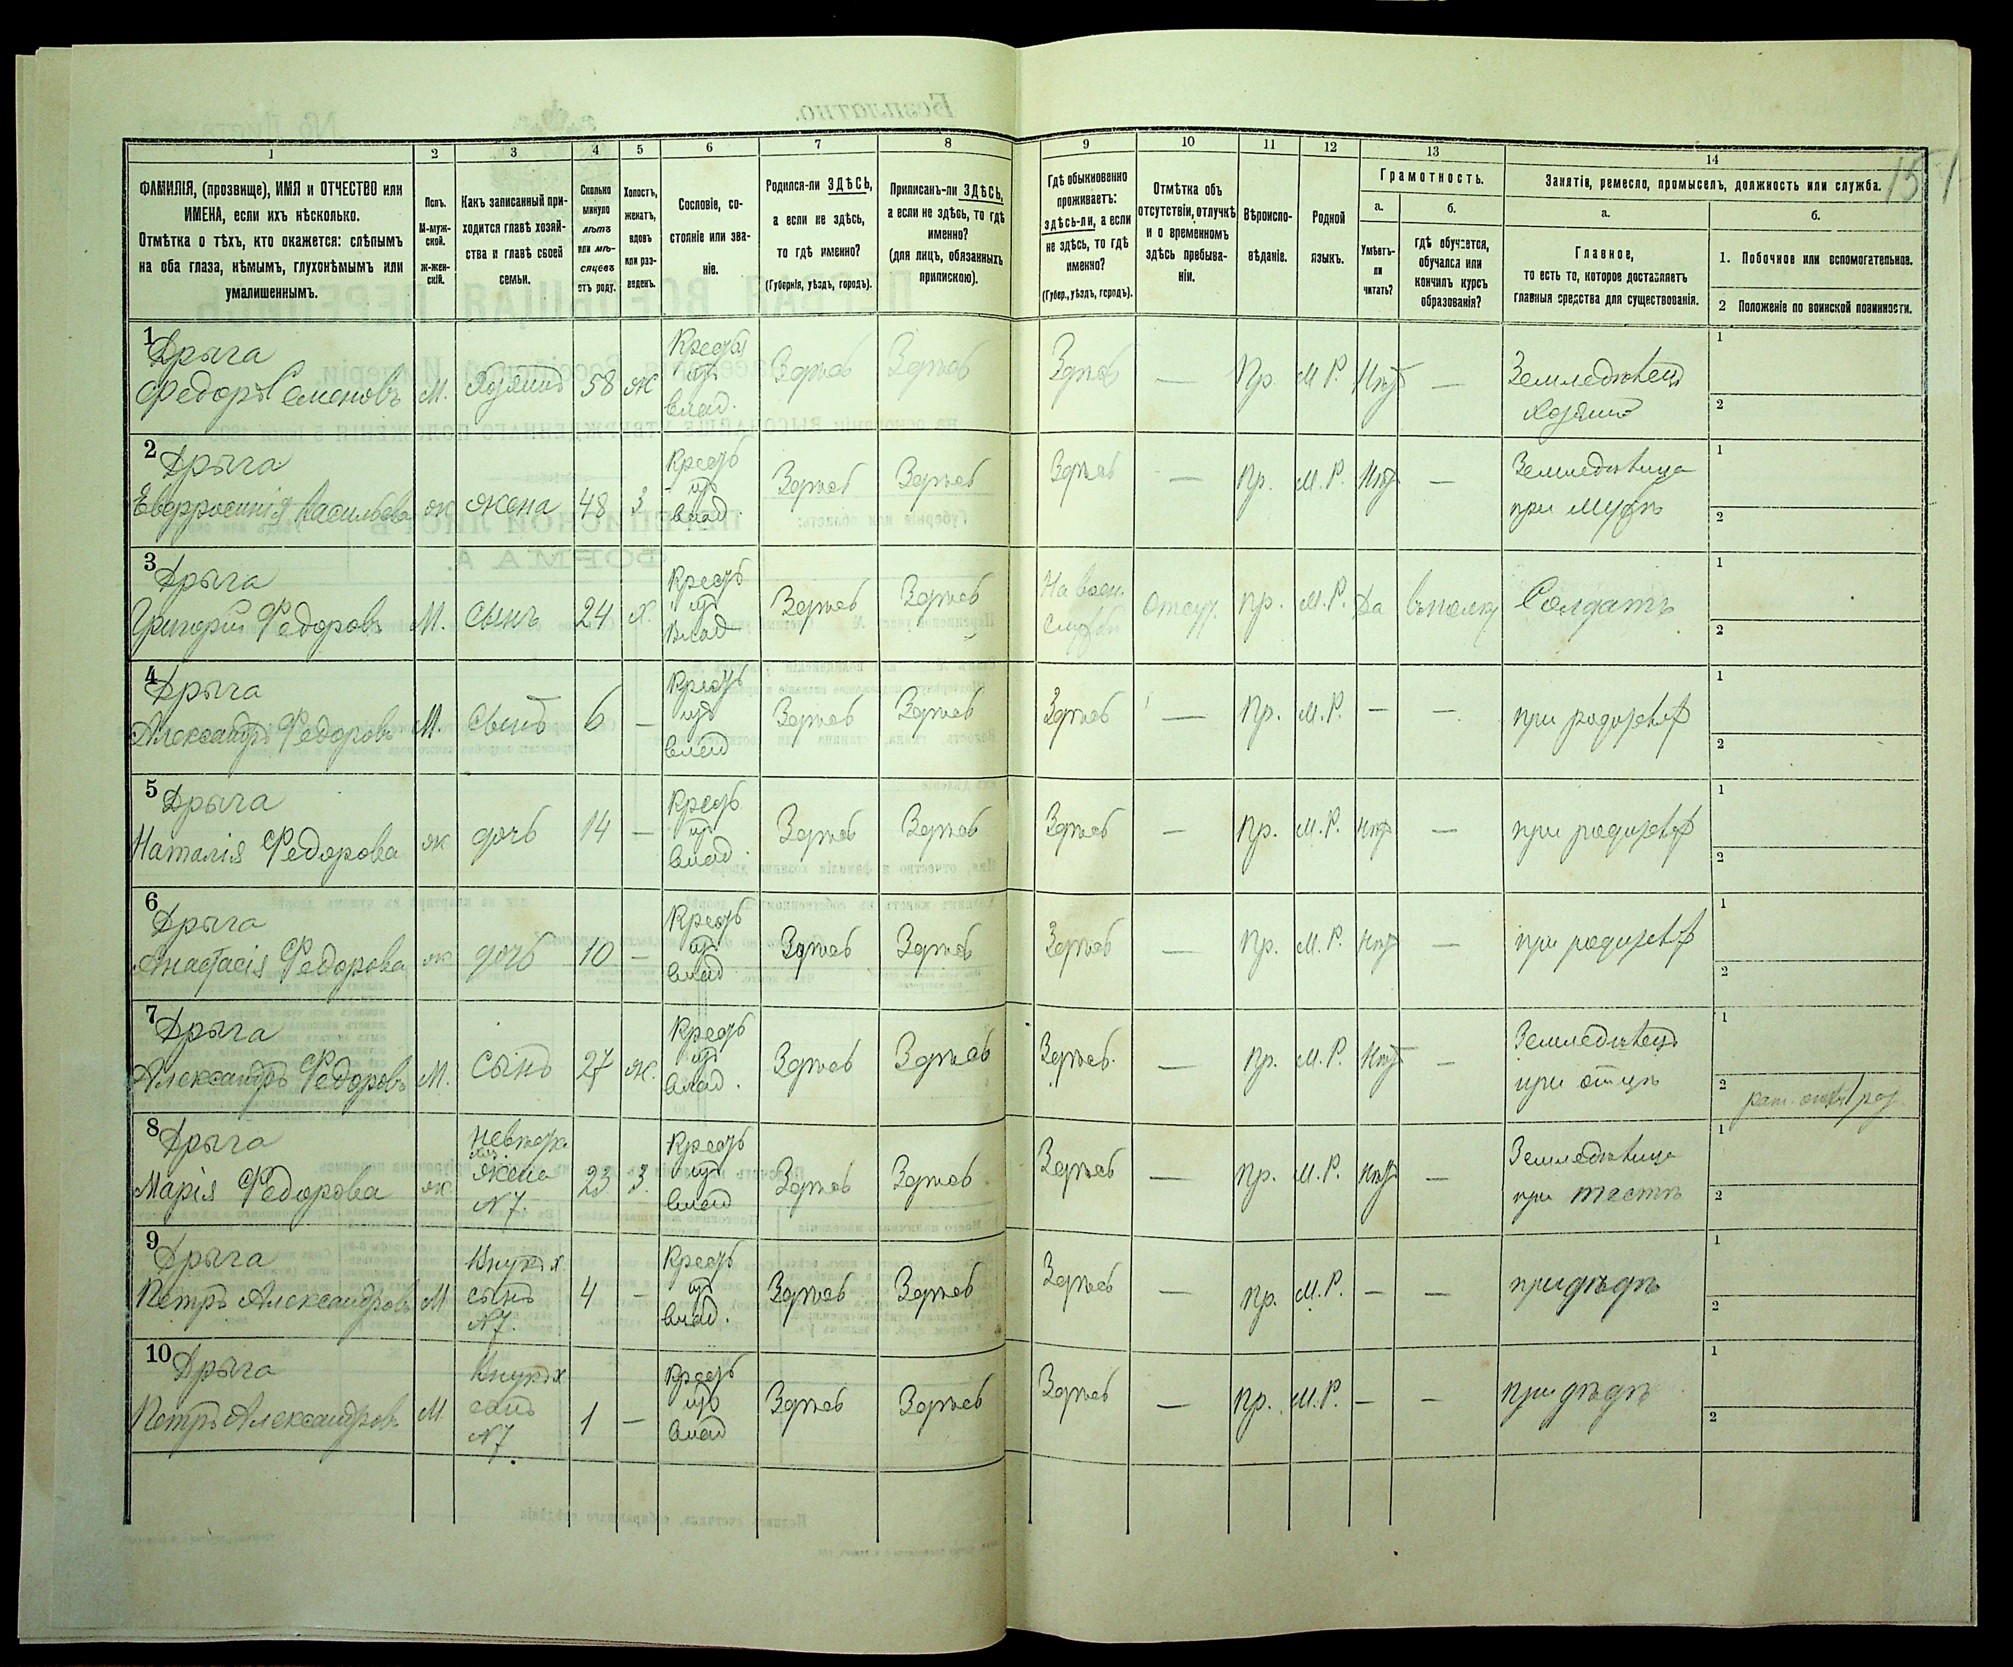 15
1
2
3
4
5
6
7
8
9
10
11
12
13
14
ФАМИЛІЯ, (прозвище), ИМЯ и ОТЧЕСТВО или
ИМЕНА, если ихъ нѣсколько.
Отмѣтка о тѣхъ, кто окажется: слѣпымъ
на оба глаза, нѣмымъ, глухонѣмымъ или
умалишеннымъ.
Полъ.
М-муж-
ской.
Ж-жен-
скій.
Какъ записанный при-
ходится главѣ хозяй-
ства и главѣ своей
семьи.
Сколько
минуло
лѣтъ
или мѣ-
сяцевъ
отъ роду.
Холостъ,
женатъ,
вдовъ
или раз-
веденъ.
Сословіе, со-
стояніе или зва-
ніе.
Родился-ли ЗДѢСЬ,
а если не здѣсь,
то гдѣ именно?
(Губернія, уѣздъ, городъ).
Приписанъ-ли ЗДѢСЬ,
а если не здѣсь, то гдѣ
именно?
(для лицъ, обязанныхъ
припискою).
Гдѣ обыкновенно
проживаетъ:
здѣсь-ли, а если
не здѣсь, то гдѣ
именно?
(Губер., уѣздъ, городъ).
Отмѣтка объ
отсутствіи, отлучкѣ
и о временномъ
здѣсь пребыва-
ніи.
Вѣроиспо-
вѣданіе.
Родной
языкъ.
Грамотность.
а.
Умѣетъ-
ли
читать?
б.
гдѣ обучается,
обучался или
кончилъ курсъ
образованія?
Занятіе, ремесло, промыселъ, должность или служба.
а.
Главное,
то есть то, которое доставляетъ
главныя средства для существованія.
б.
1. Побочное или вспомогательное.
2 Положеніе по воинской повинности.
1 Дрыга
Федоръ Семеновъ М. Хозяинъ 58 ж Крестья
изъ
влад. Здѣсь Здѣсь Здѣсь — Пр. М.Р. Нѣтъ — Земледѣлецъ
Хозяинъ
1
2
2 Дрыга
Евфросинія Васильева ж жена 48 з Крестъ
изъ
влад. Здѣсь Здѣсь Здѣсь — Пр. М.Р. Нѣтъ — Земледѣлица
при мужѣ
1
2
3 Дрыга
Григорій Федоровъ М. сынъ 24 х. Крестъ
изъ
влад Здѣсь Здѣсь На воен
службѣ отсут. пр. М.Р. Да въ полку Солдатъ
1
2
4 Дрыга
Александръ Федоровъ М. Сынъ 6 — Крестъ
изъ
влад Здѣсь Здѣсь Здѣсь — Пр. М.Р. — — при родител
1
2
5 Дрыга
Наталія Федорова ж дочь 14 — Крестъ
изъ
влад. Здѣсь Здѣсь Здѣсь — Пр. М.Р. Нѣтъ — при родител
1
2
6 Дрыга
Анастасія Федорова ж дочь 10 — Крестъ
изъ
влад Здѣсь Здѣсь Здѣсь — Пр. М.Р. Нѣтъ — при родител
1
2
7 Дрыга
Александръ Федоровъ М. Сынъ 27 ж. Крестъ
изъ
влад. Здѣсь Здѣсь Здѣсь. — Пр. М.Р. Нѣтъ — Земледѣлецъ
при отцѣ
1
2
8 Дрыга
Марія Федорова ж жена
N7 23 з. Крестъ
изъ
влад Здѣсь Здѣсь Здѣсь — Пр. М.Р. Нѣтъ — Земледѣлица
при тестѣ
1
2
9 Дрыга
Петръ Александровъ М Внукъ х.
сынъ
N7. 4 — Крестъ
изъ
влад. Здѣсь Здѣсь Здѣсь — Пр. М.Р. — — при дѣдѣ
1
2
10 Дрыга
Петръ Александровъ М. Внукъ х
сынъ
N7. 1 — Крестъ
изъ
влад Здѣсь Здѣсь Здѣсь — Пр. М.Р. — — при дѣдѣ
1
2